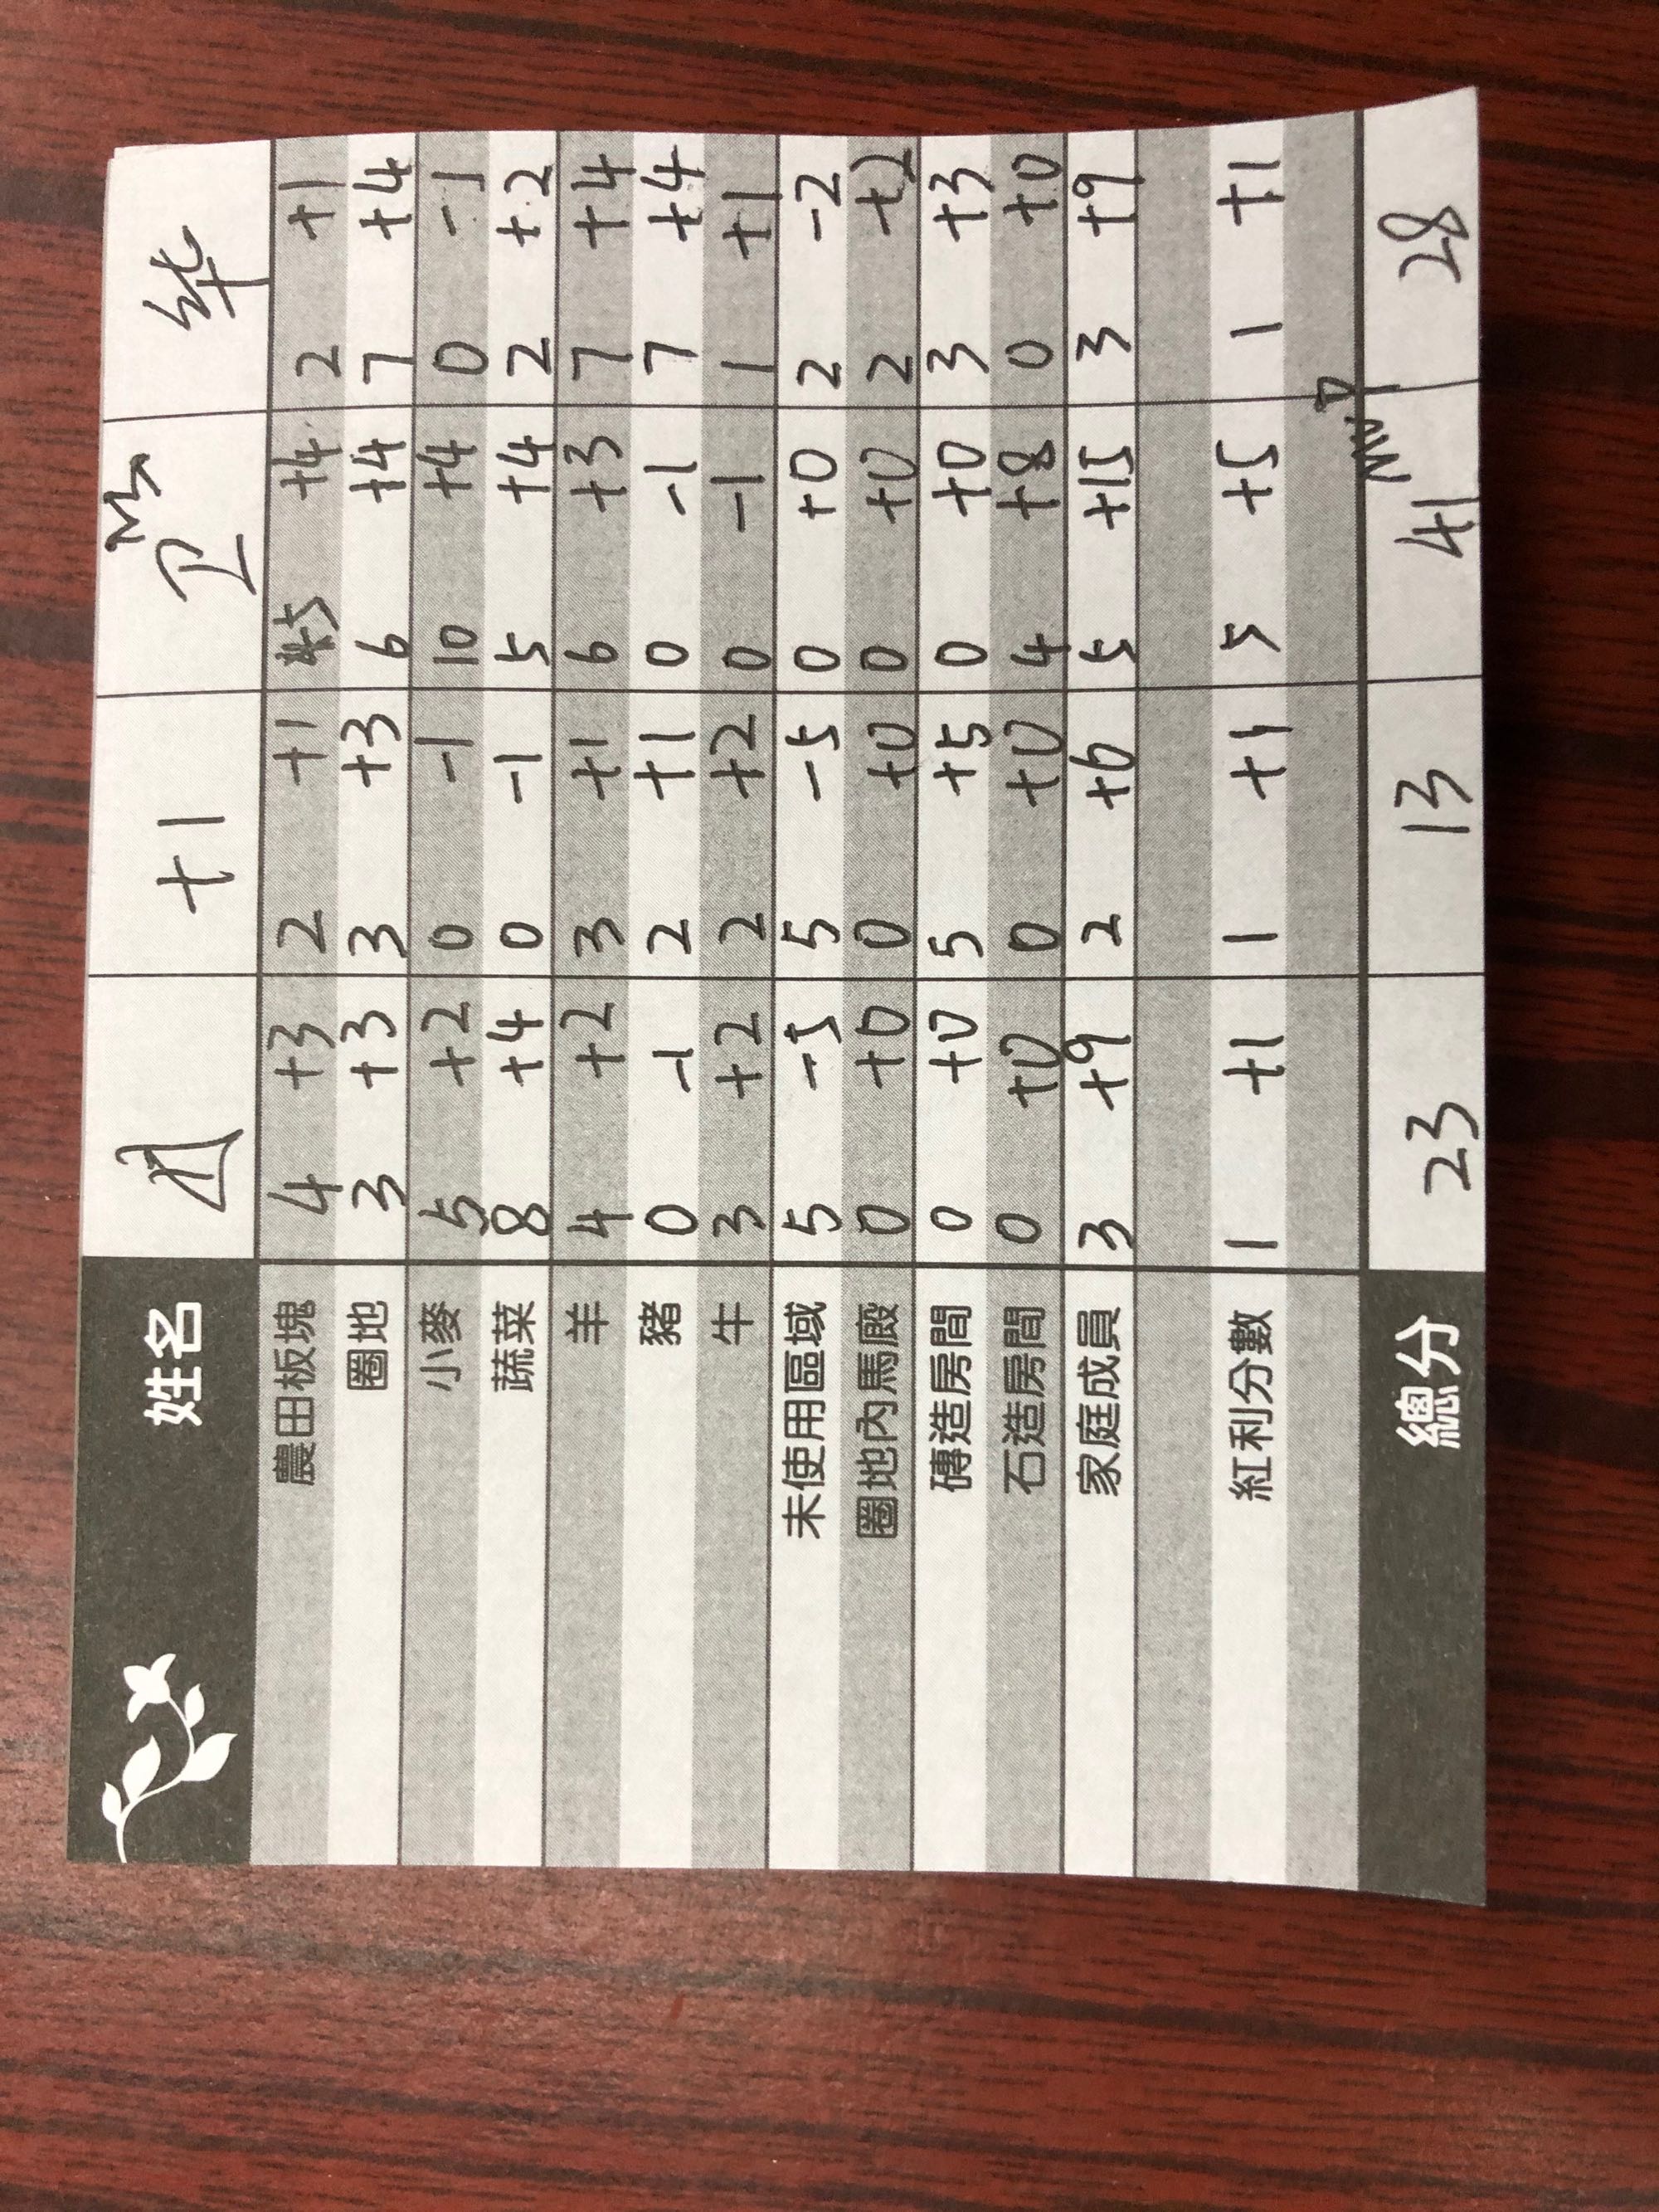 姓名 +1 卫 华
農田板塊 4 +3 2 +1 5 +4 2 +1
圈地 3 +3 3 +3 6 +4 7 +4
小麥 5 +2 0 -1 10 +4 0 -1
蔬菜 8 +4 0 -1 5 +4 2 +2
羊 4 +2 3 +1 6 +3 7 +4
豬 0 -1 2 +1 0 -1 7 +4
牛 3 +2 2 +2 0 -1 1 +1
未使用區域 5 -5 5 -5 0 +0 2 -2
圈地內馬廄 0 +0 0 +0 0 +0 2 +2
磚造房間 0 +0 5 +5 0 +0 3 +3
石造房間 0 +0 0 +0 4 +8 0 +0
家庭成員 3 +9 2 +6 5 +15 3 +9
紅利分數 1 +1 1 +1 5 +5 1 +1
總分 23 13 41 MVP 28